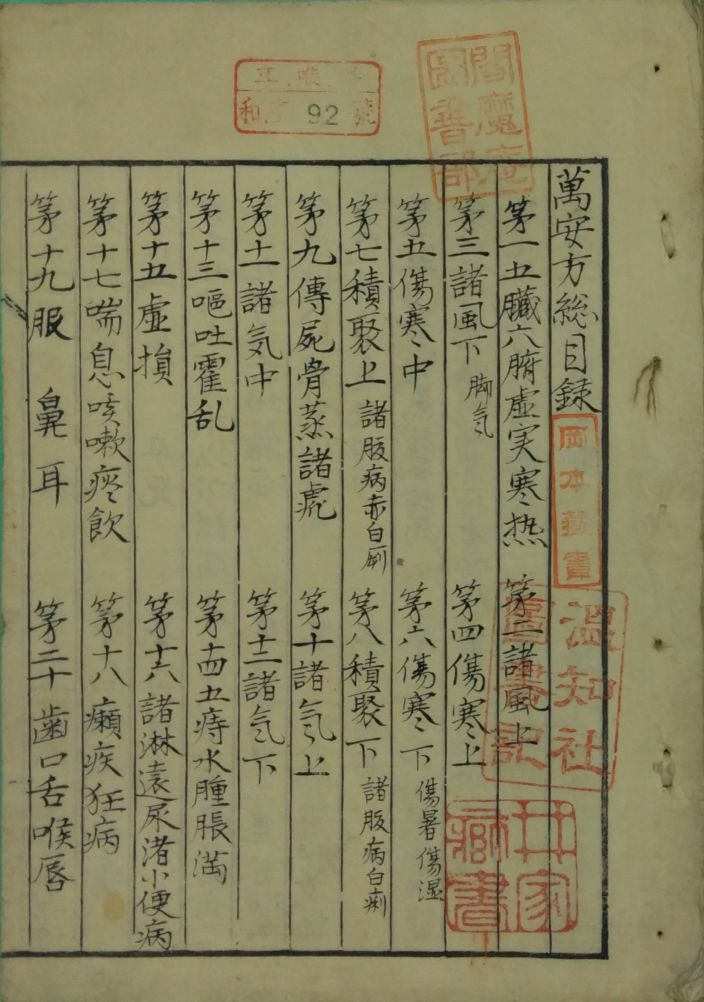 萬安方総目録
第一五臓六腑虚実寒热 第二諸風上
第三諸風下 脚気 第四傷寒上
第五傷寒中 第六傷寒下 傷暑傷湿
第七積聚上 諸腹病赤白痢 第八積聚下 諸腹病白痢
第九傳屍骨蒸諸瘧 第十諸気上
第十一諸気中 第十二諸気下
第十三嘔吐霍乱 第十四五痔水腫脹満
第十五虚損 第十六諸淋遺尿渚小便病
第十七喘息咳嗽痰飲 第十八癲疾狂病
第十九眼鼻耳 第二十歯口舌喉唇
閻魔庵
図書部
和 92 號
岡本藏書
温知社
圖書記
井家
藏書